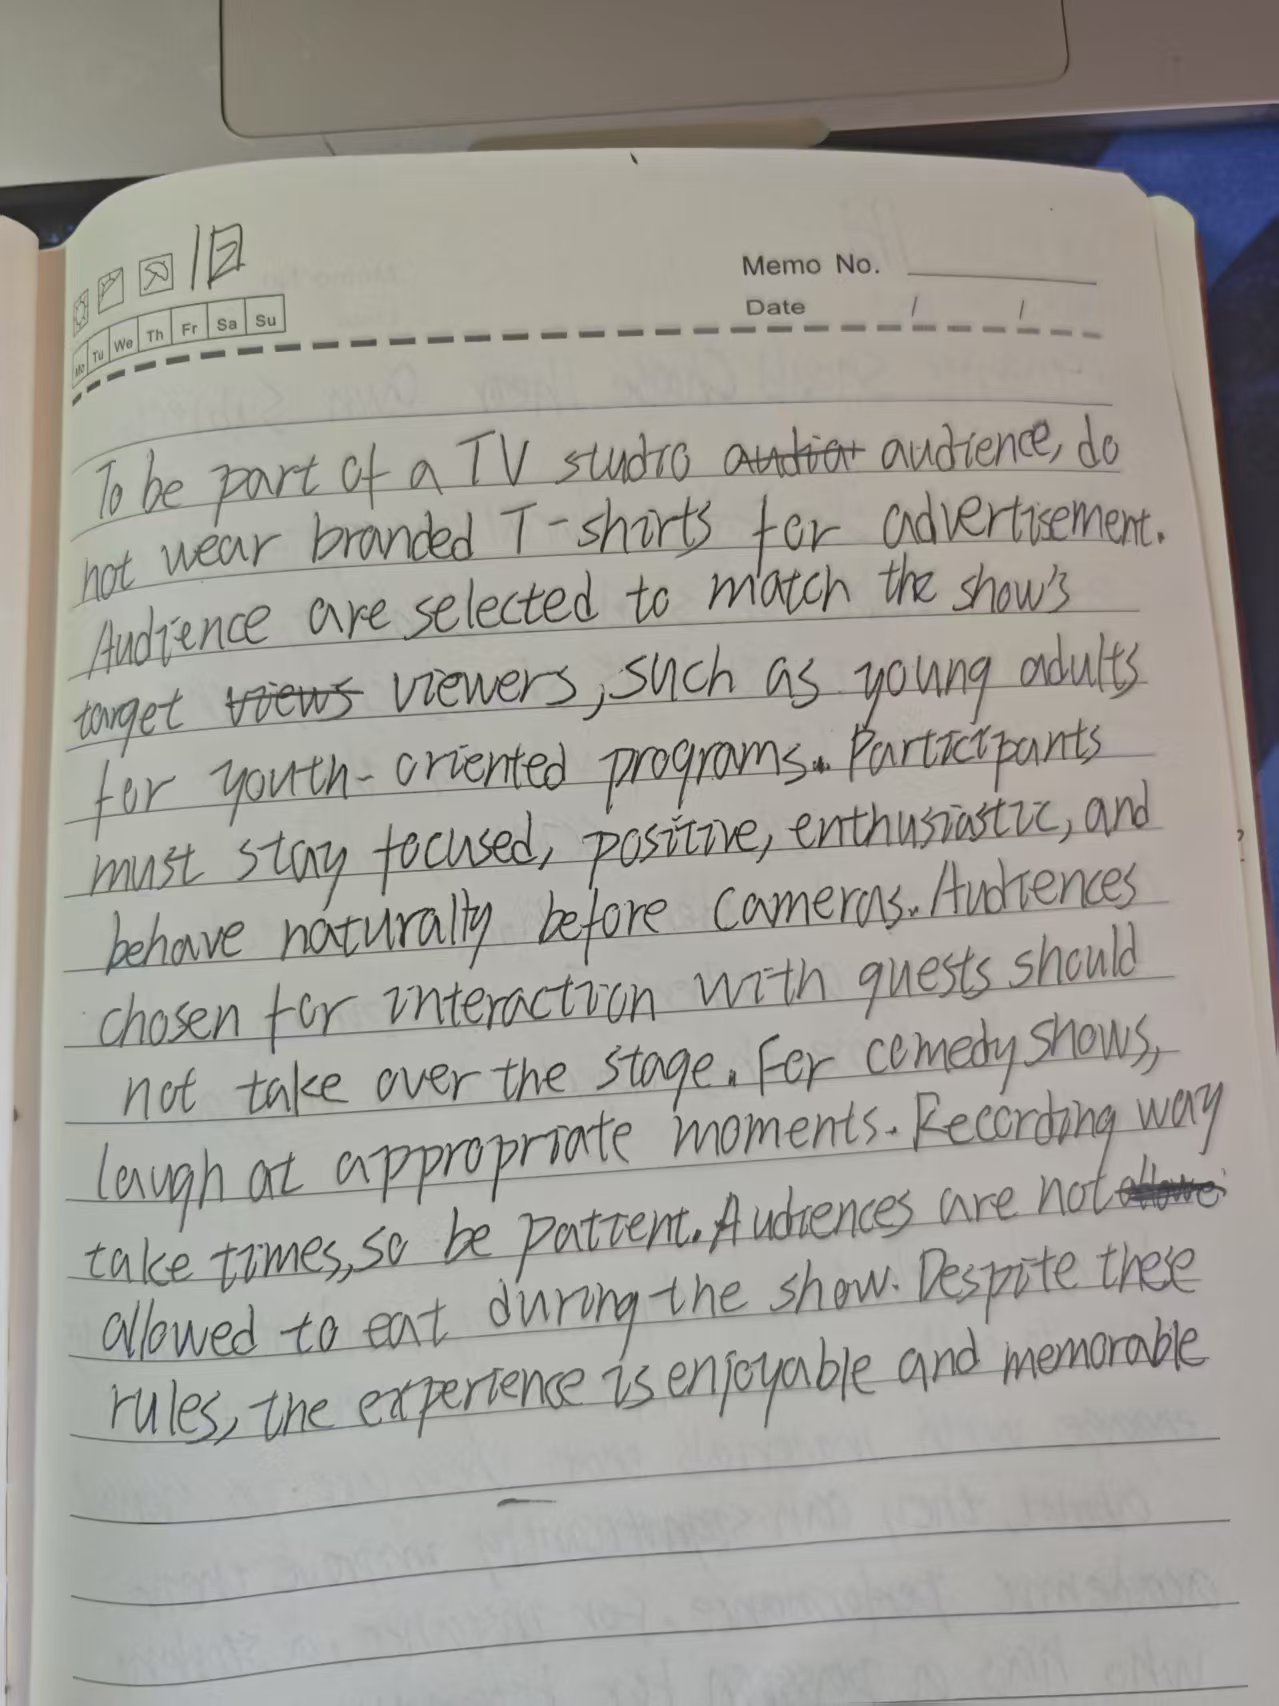 Memo No.
Date / /
Mo Tu We Th Fr Sa Su
To be part of a TV studio audience, do
not wear branded T-shirts for advertisement.
Audience are selected to match the show's
target views viewers, such as young adults
for youth-oriented programs. Participants
must stay focused, positive, enthusiastic, and
behave naturally before cameras. Audiences
chosen for interaction with guests should
not take over the stage. For comedy shows,
laugh at appropriate moments. Recording way
take times, so be patient. Audiences are not allowe
allowed to eat during the show. Despite these
rules, the experience is enjoyable and memorable